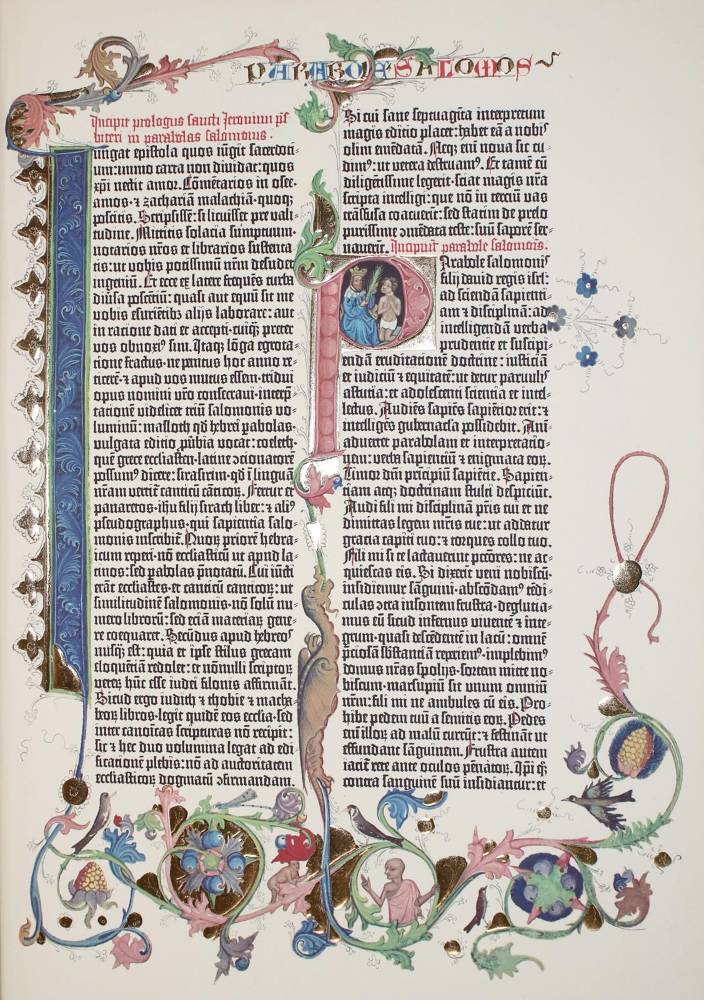 PARABOLE SALOMOS
Incipit prologus sancti Jeronimi p̄s
biteri in parabolas salomonis .
Iungat epistola quos iūgit sacerdoti-
um: immo carta non dividat: quos
xp̄i nectit amor. Cōmētarios in osee.
amos . ⁊ zachariā malachiā . quoq̨
poscitis. Scripsissē : si licuisset pre vali-
tudine. Mittitis solacia sumptuum.
notarios nr̄os et librarios sustenta-
tis : ut vobis potissimū nr̄m desudet
ingeniū. Et ecce ex latere frequēs turba
diūsa poscentiū : quasi aut equū sit me
vobis esuriētib̄ alijs laborare : aut
in ratione dati et accepti . cuiq̄ preter
vos obnoxi⁹ sim. Itaq̨ lōga egrota-
tione fractus . ne penitus hoc anno re-
ticerē . ⁊ apud vos mutus essem . tridui
opus nomini vr̄o consecravi . interp̄-
tationē videlicet triū salomonis vo-
luminū : masloth q̄d hebrei parabolas .
vulgata editio ꝓūbia vocat : coeleth .
quē grece ecclīasten . latine ↄcionatorē
possum⁹ dicere : sirasirim . qđ ī linguā
nr̄am vertit̄ canticū cāticoꝝ. Fertur et
panaretos . ihū filij sirach liber : ⁊ ali⁹
pseudographus . qui sapientia salo-
monis inscribit̄. Quoꝝ priorē hebra-
icum repperi . nō ecclīasticū ut apud la-
tinos : sed ꝑabolas p̄notatū. Cui iūcti
erāt ecclīastes . et canticū canticoꝝ : ut
similitudinē salomonis . nō solū nu-
mero librorū : sed eciā materiaꝝ gene-
re coequaret. Secūdus apud hebreos
nusq̄ est : quia et ipse stilus grecam
eloquētiā redolet : et nōnulli scriptoꝝ
veteꝝ hūc esse iudei filonis affirmāt.
Sicud ergo iudith ⁊ thobie ⁊ macha-
beoꝝ libros . legit quidē eos ecclīa . sed
inter canōicas scripturas nō recipit :
sic ⁊ hec duo volumina legat ad edi-
ficationē plebis : nō ad auctoritatem
ecclīasticoꝝ dogmatū ↄfirmandam.
Si cui sane septuagīta interpretum
magis editio placet : habet eā a nobis
olim emēdatā. Neq̨ eni nova sic cu-
dim⁹ : ut vetera destruam⁹. Et tamē cū
diligētissime legerit . sciat magis nr̄a
scripta intelligi : que nō in terciū vas
trāsfusa coacuerīt : sed statim de prelo
purissime ↄmēdata teste : suū saporē ser-
vaverīt. Incipiunt parabole salomonis.
Parabole salomonis
filij david regis isrl̄ :
ad sciendā sapienti-
am ⁊ disciplinā : ad
intelligendā verba
prudentie et suscipi-
endā eruditationē doctrine : iusticiā
et iudiciū ⁊ equitatē : ut detur parvulis
astutia : et adolescenti scientia et intel-
lectus. Audiēs sapiēs sapiētior erit : ⁊
intelligēs gubernacla possidebit. Ani-
advertet parabolam et interpretatio-
nem : verba sapientiū ⁊ enigmata eoꝝ.
Timor dn̄i principiū sapiētie. Sapien-
tiam atq̨ doctrinam stulti despiciūt.
Audi fili mi disciplinā pr̄is tui et ne
dimittas legem mr̄is tue : ut addatur
gracia capiti tuo : ⁊ torques collo tuo.
Fili mi si te lactaverint pctōres : ne ac-
quiescas eis. Si dixerīt veni nobiscū .
insidiemur sanguini . abscōdam⁹ tēdi-
culas ↄtra insontem frustra . degluti-
amus eū sicud infernus viventē ⁊ inte-
grum . quasi descēdentē in lacū : omnē
p̄ciosā sb̄stantiā repriem⁹ . implebim⁹
domus nr̄as spolijs . sortem mitte no-
biscum . marsupiū sit unum omniū
nr̄m : fili mi ne ambules cū eis. Pro-
hibe pedem tuū a semitis eoꝝ. Pedes
eni illoꝝ ad malū currūt : ⁊ festināt ut
effundant sāguinem. Frustra autem
iacit̄ rete ante oculos pēnatoꝝ. Ip̄i q̨
contra sanguinē suū insidiantur : et